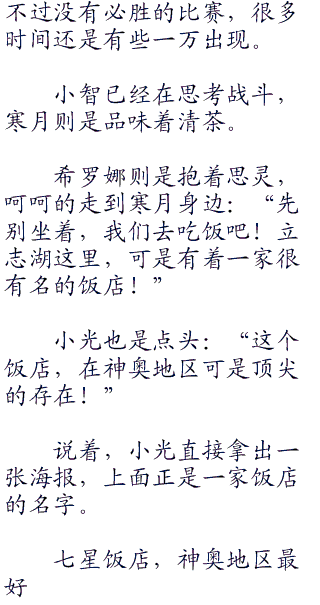 不过没有必胜的比赛，很多
时间还是有些一万出现。
小智已经在思考战斗，
寒月则是品味着清茶。
希罗娜则是抱着思灵，
呵呵的走到寒月身边：“先
别坐着，我们去吃饭吧！立
志湖这里，可是有着一家很
有名的饭店！”
小光也是点头：“这个
饭店，在神奥地区可是顶尖
的存在！”
说着，小光直接拿出一
张海报，上面正是一家饭店
的名字。
七星饭店，神奥地区最
好